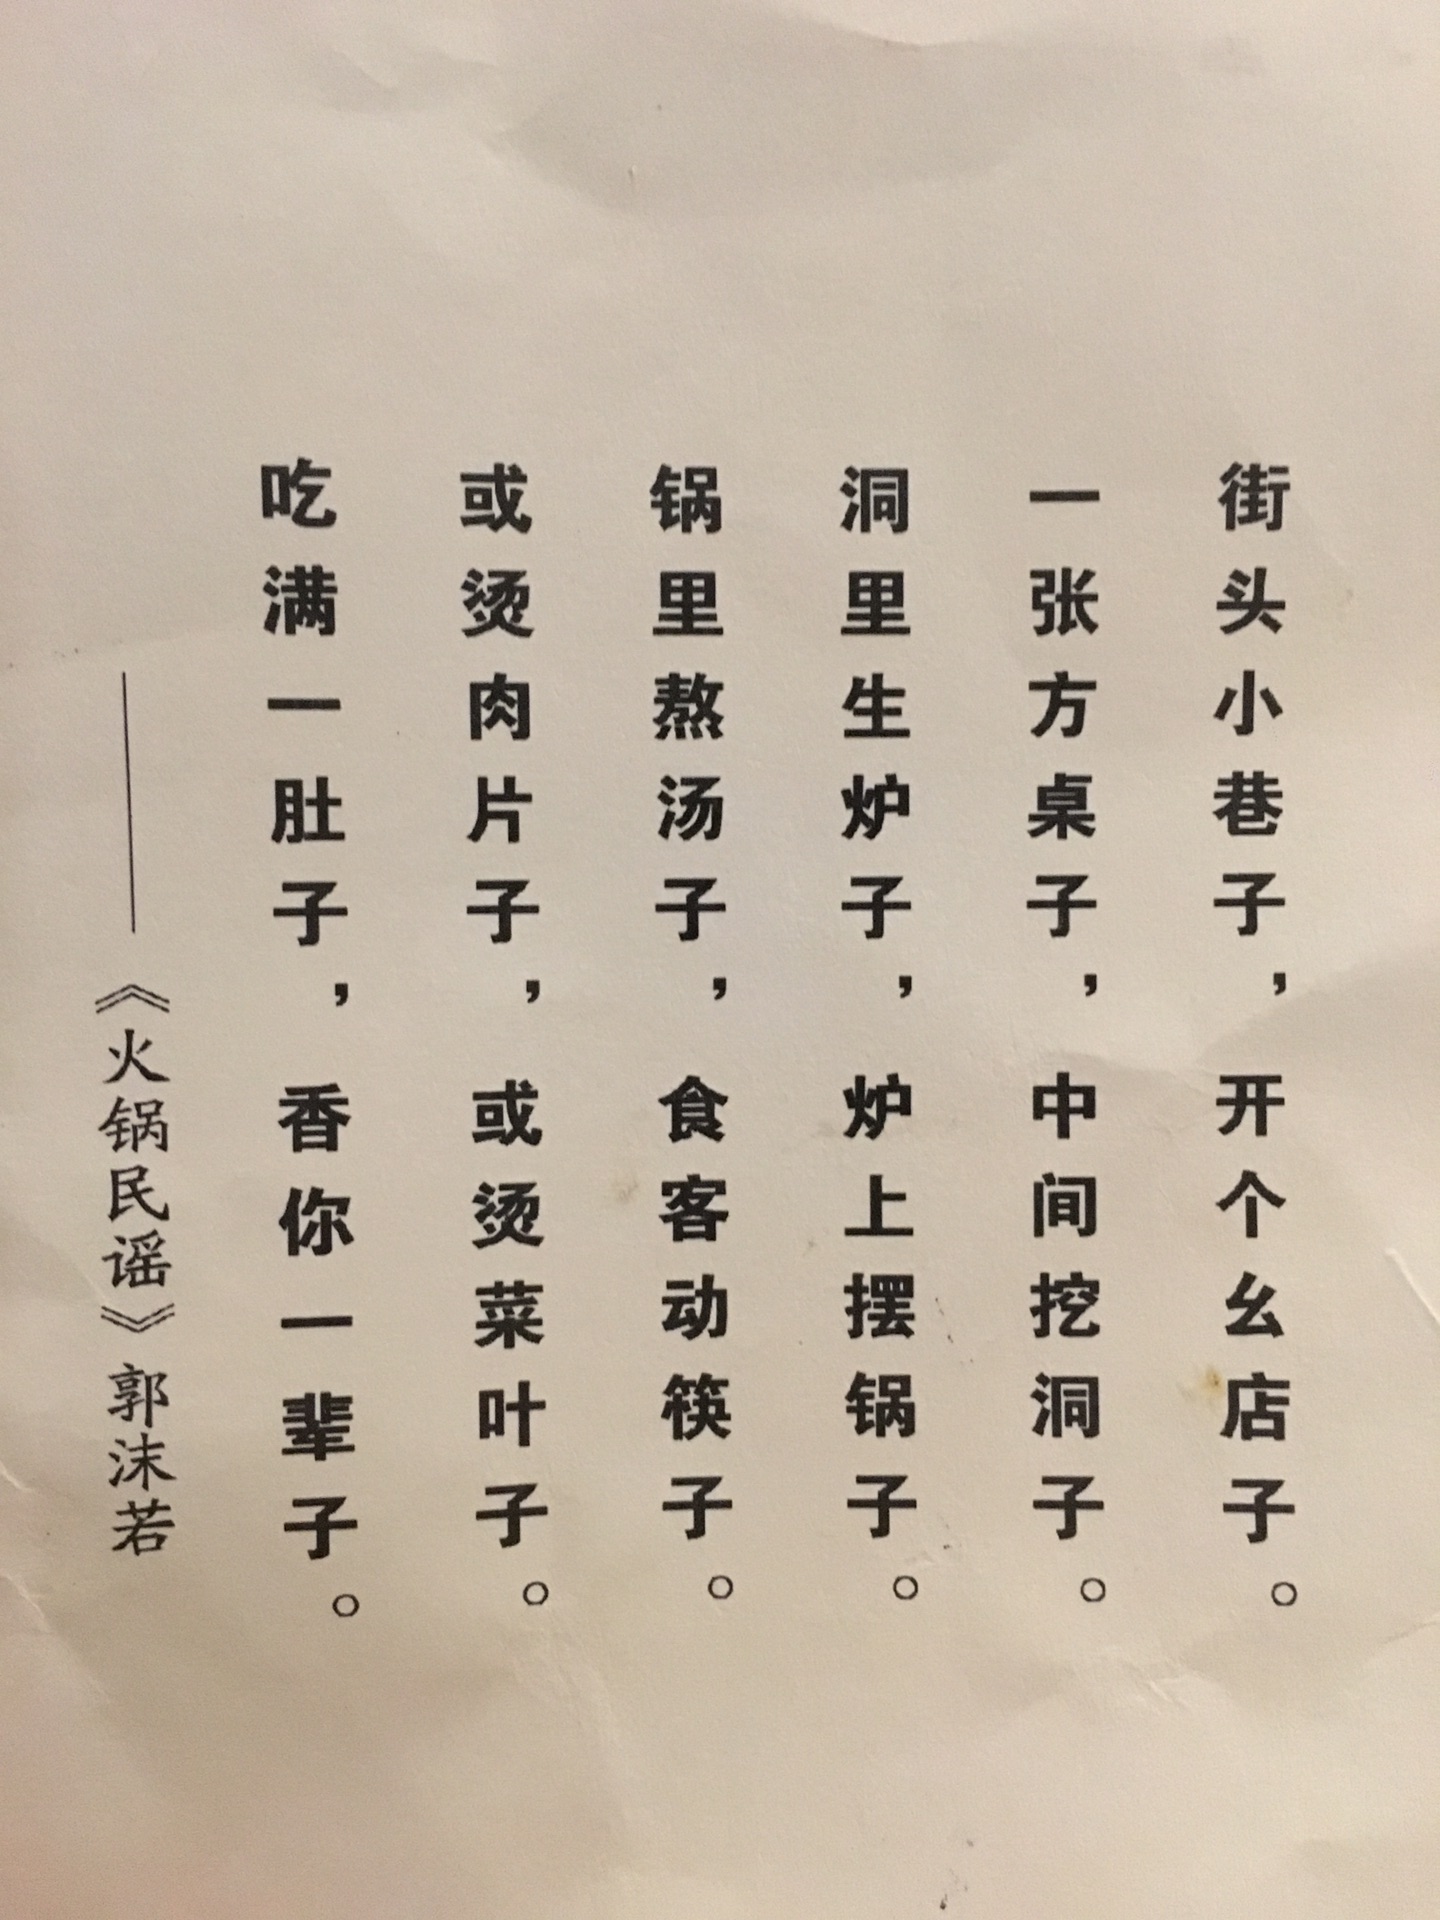 街头小巷子，开个幺店子。
一张方桌子，中间挖洞子。
洞里生炉子，炉上摆锅子。
锅里熬汤子，食客动筷子。
或烫肉片子，或烫菜叶子。
吃满一肚子，香你一辈子。
——《火锅民谣》郭沫若